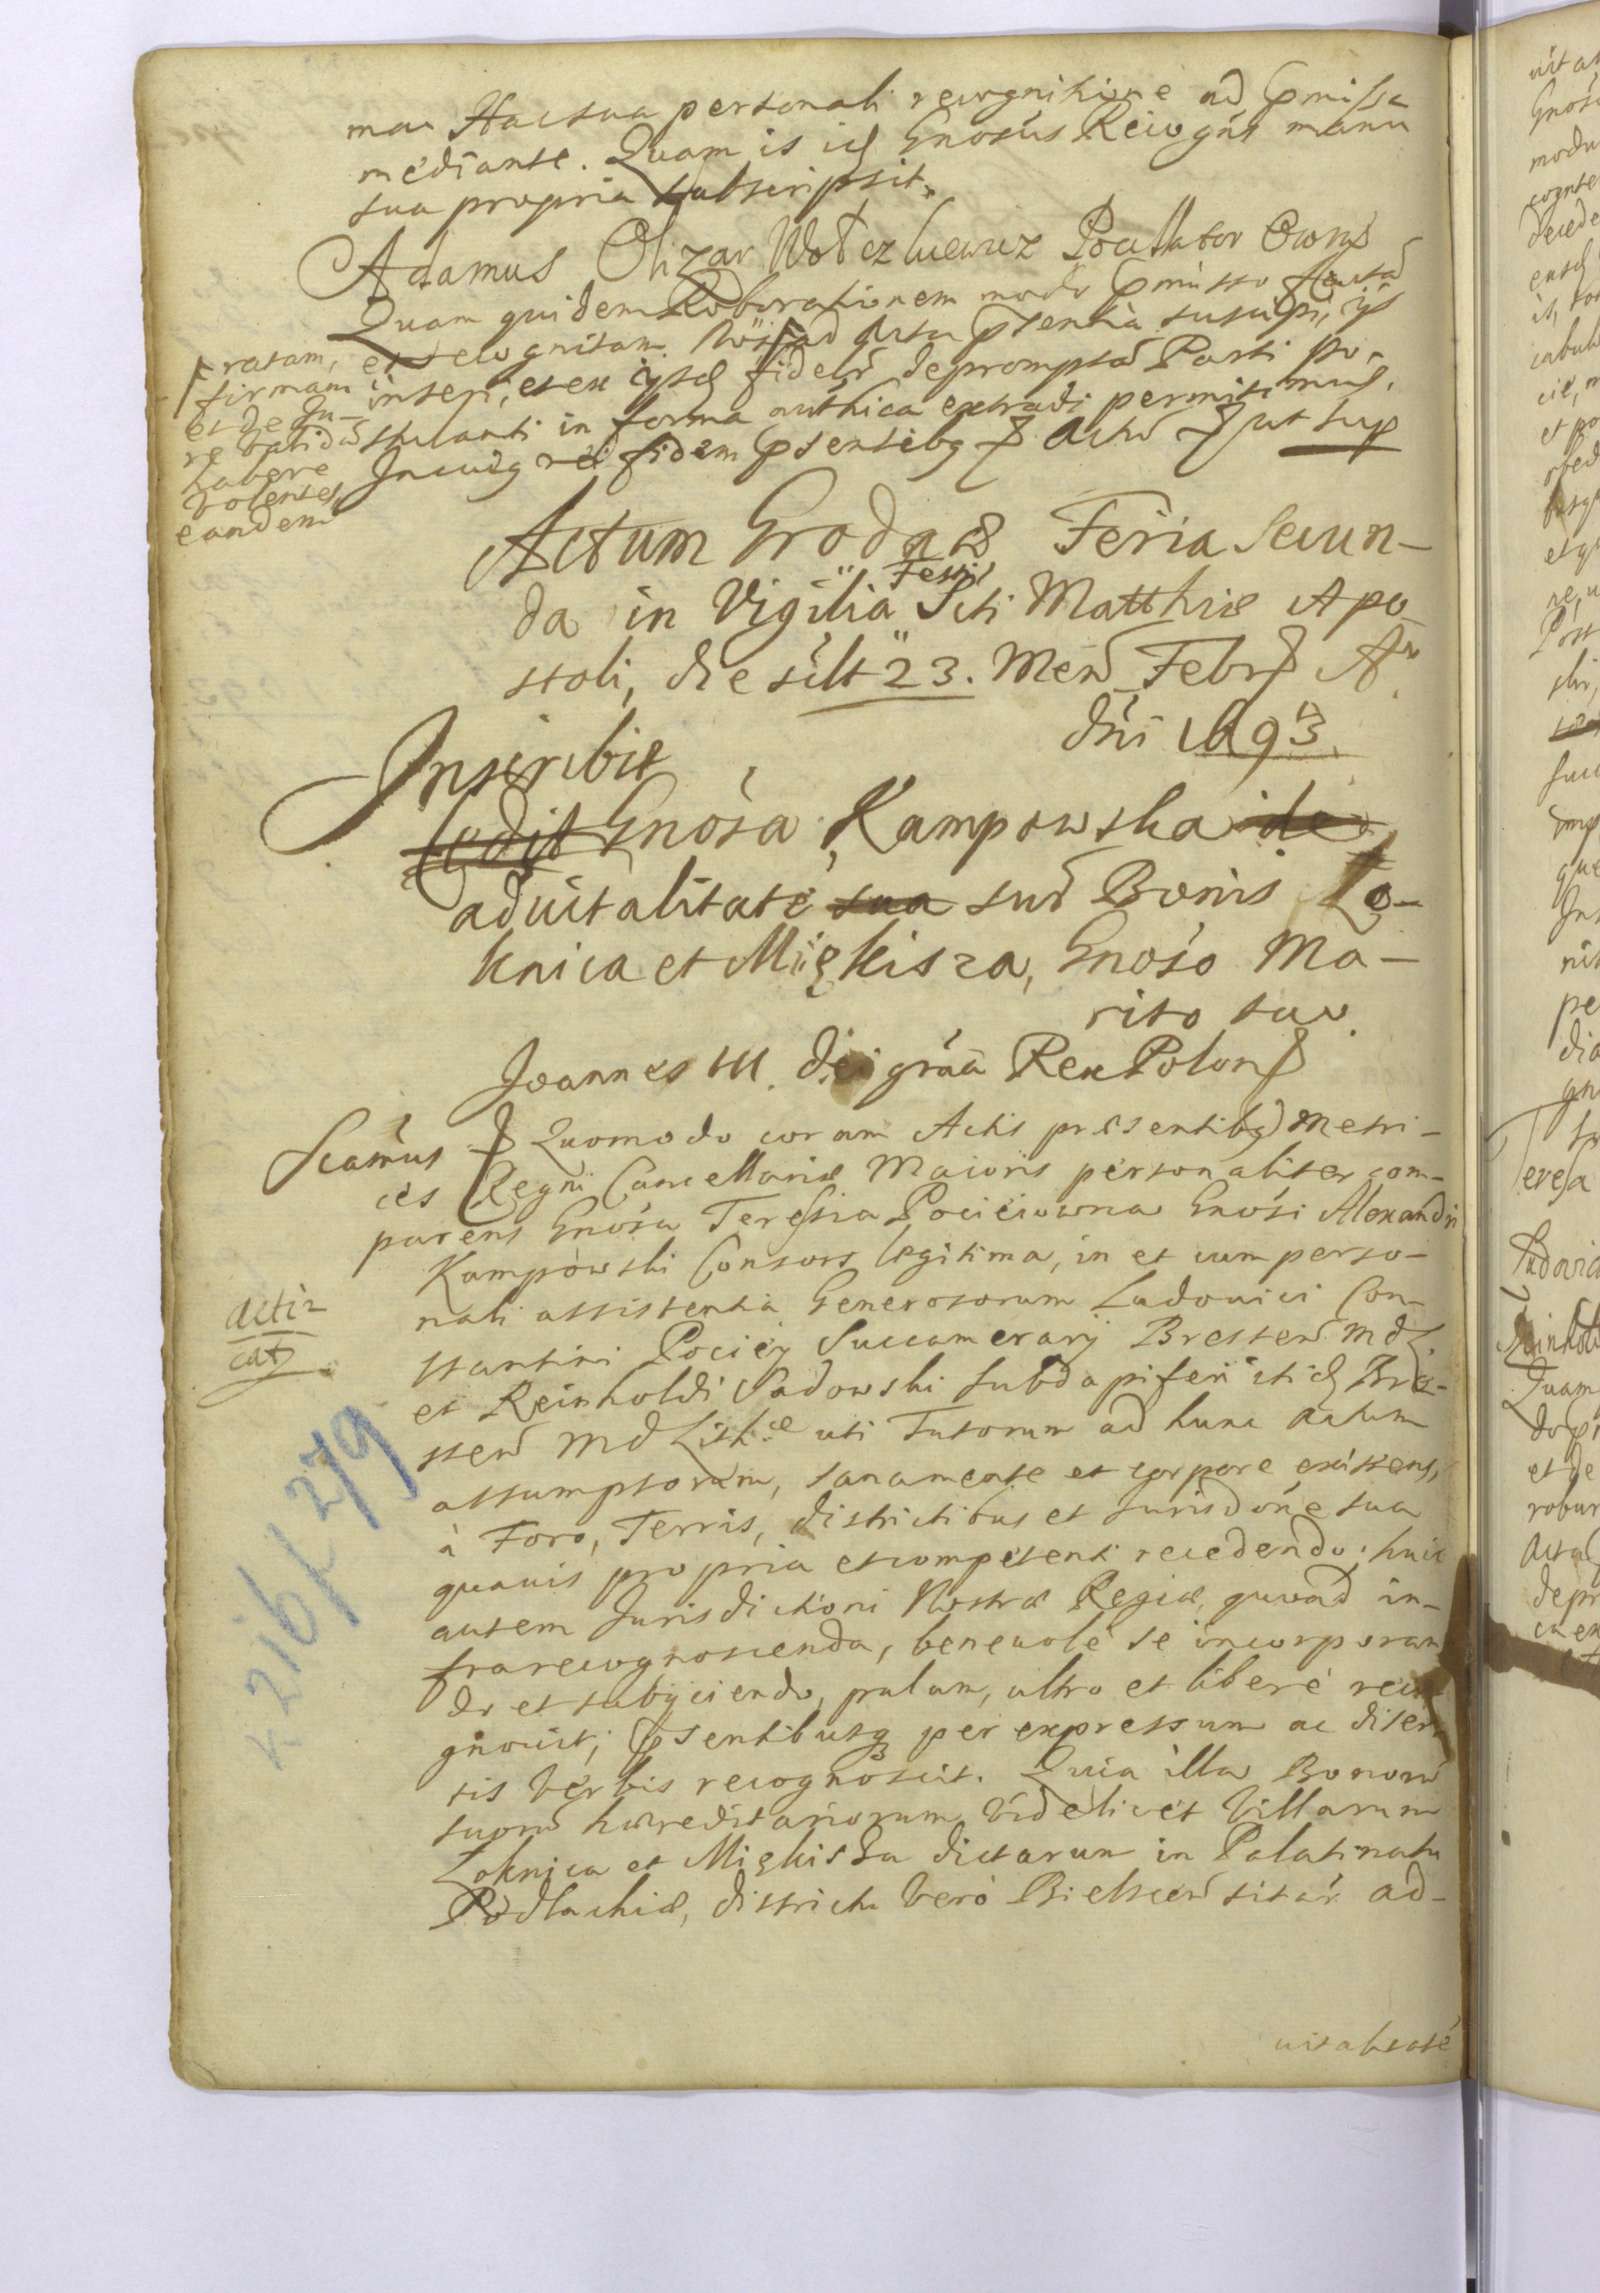 mau Hac sua personali recognitione ad pmissa
mediante. Quam is id Gnosus Recogns manu
sua propria subscripsit.
Adamus Olizar Wołczkiewicz Pocillator Owrus
Quam quidem Roborationem modo pmisso factã
et recognitam. Nos ad Acta psentia suscipi, ijs
inseri, et ex ijsd fideli depromptã Parti po-
stulanti in forma authica extradi permisimus.
In cuig rei fidem psentibg Actũ ut sup
ratam,
firmam
et de Ju-
re validã
habere
volentes,
eandem
Actum Grodnæ Feria Secun-
da in Vigilia Festi Scti Matthiæ Apo
stoli, die scilt 23. Mens Febr Ao
dni 1693
Inscribit
Cedit Gnosa Kampowska de
aduitalitate sua suã Bonis Lo-
knica et Miękisza, Gnoso Ma-
rito suo.
Joannes III. dei gráa Rex Polon
Scamus Quomodo coram Actis præsentibg Metri-
ces Regni Cancellariæ Maioris personaliter com-
parens Gnosa Teresia Pocieiowna Gnosi Alexandri
Kampowski Consors legitima, in et cum perso-
nali assistentia Generosorum Ludouici Con-
stantini Pociey Succamerarij Bresten M d L.
et Reinholdi Sadowski subdapiferi itid Bre-
sten M d Lithæ uti Tutorum ad hunc actum
assumptorum, sana mente et corpore existens,
à Foro, Terris, districtibus et Jurisdone sua
quauis propria et competenti recedendo; huic
autem Jurisdictioni Nostræ Regiæ, quoad in-
frarecognoscenda, beneuole se incorporan
do et subijciendo, palam, ultro et libere reco
gnouit; psentibusq per expressum ac diser
tis verbis recognoscit. Quia illa Bonorũ
suorũ hæreditariorum, videlicet Villarum
Loknica et Miękisza dictarum in Palatinatu
Podlachiæ, districtu vero Bielscen sitar ad-
uitalitate
Actic
cat
k 216/279